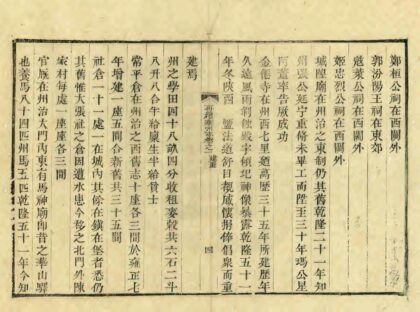 鄭桓公祠在西關外
郭汾陽王祠在東郊
魏萊公祠在西關外
姬忠烈公祠在西關外
城隍廟在州治之東制仍其舊乾隆二十一年知
州張公廷宁重修未畢工而陞至三十年瑪公星
阿董率告厥成功
金龍寺在州西七里廼萬歷三十五年所建歷年
久遠風雨剝蝕殿宇傾圮神像暴露乾隆五十一
年冬陝西 鹽法道舒目覩感懷捐俸倡眾而重
建焉
州之學田四十八畝四分收租麥穀共六石二斗
八升八合半給廩生半給貧士
常平倉在州治之西舊志十座各三間於雍正七
年增建一座五間合新舊共三十五間
社倉一十一處一在城內其餘在鎮在堡者悉仍
其舊惟大張社之倉因遭水患今移之北門外陳
家村每處一座座各三間
官厰在州治大門內東有馬神廟即昔之華山驛
也養馬八十四匹州馬五匹乾隆五十一年今知
四